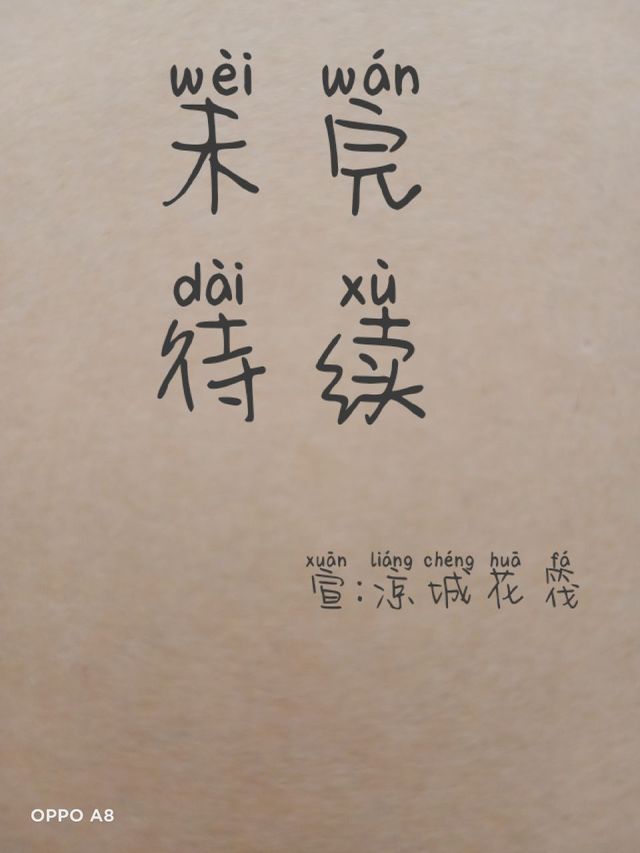 wèi wán
未完
dài xù
待续
xuān liáng chéng huā fá
宣:凉城花筏
OPPO A8